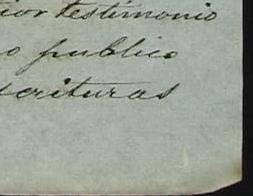 rior testimonio
o publico
scrituras